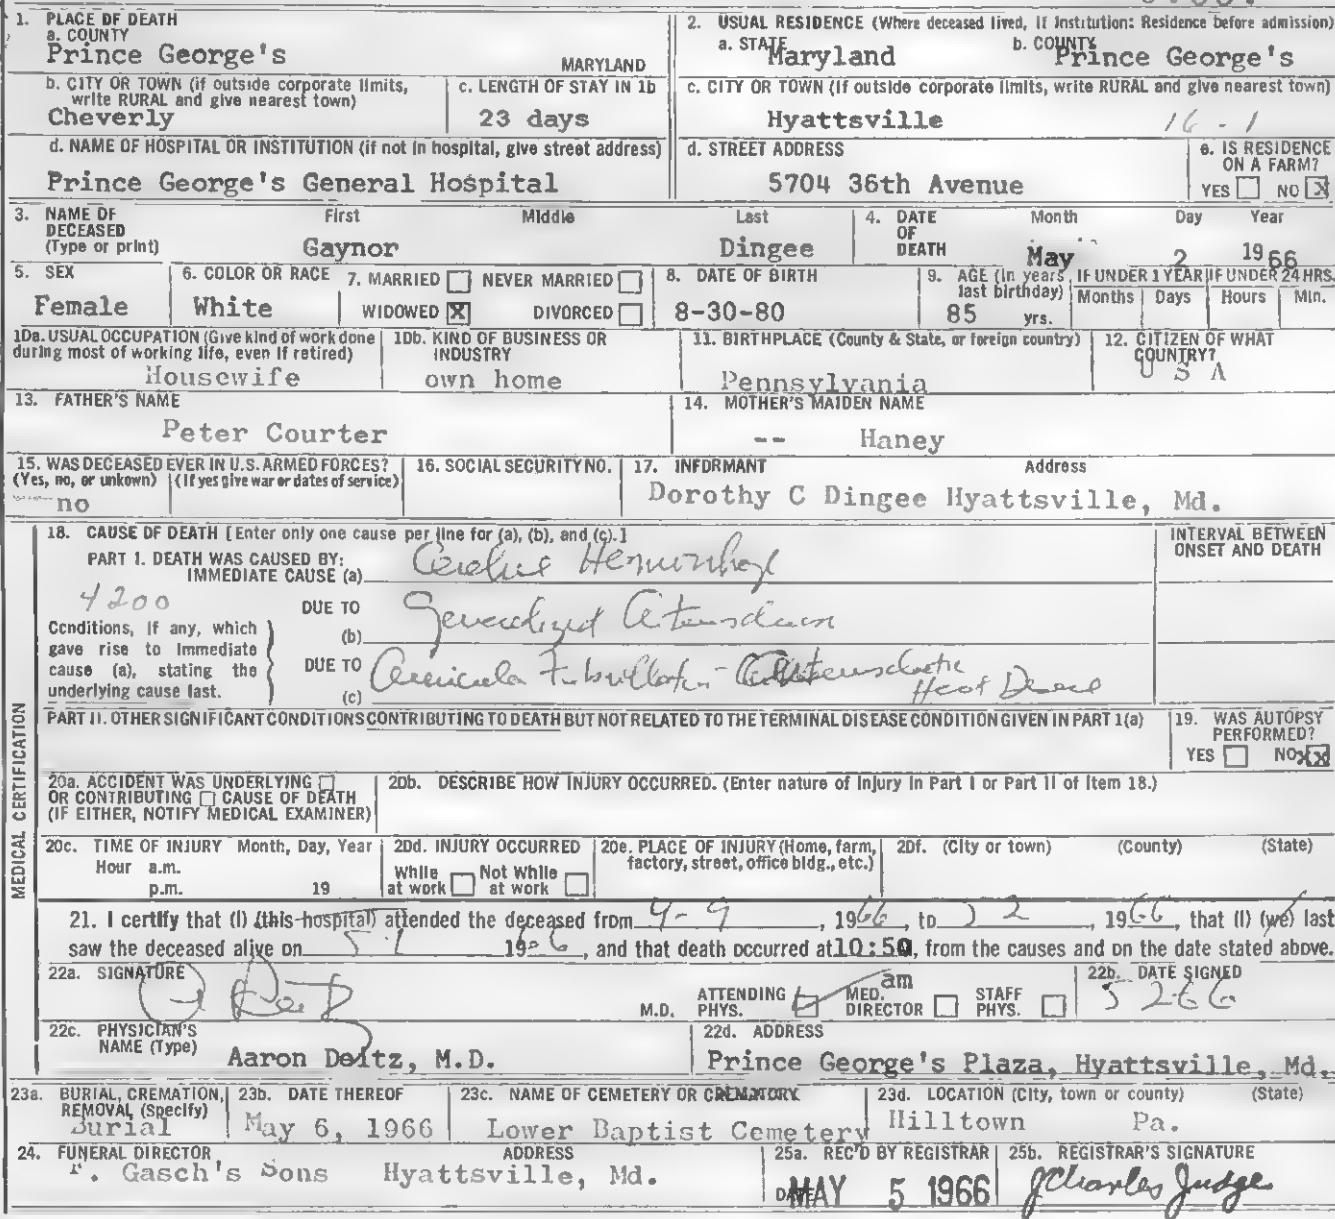 1. PLACE OF DEATH
a. COUNTY
Prince George's
MARYLAND
2. USUAL RESIDENCE (Where deceased lived, If Institution: Residence before admission)
a. STATE
Maryland
b. COUNTY
Prince George's
b. CITY OR TOWN (if outside corporate limits, write RURAL and give nearest town)
Cheverly
c. LENGTH OF STAY IN 1b
23 days
c. CITY OR TOWN (If outside corporate limits, write RURAL and give nearest town)
Hyattsville
16-1
d. NAME OF HOSPITAL OR INSTITUTION (if not in hospital, give street address)
Prince George's General Hospital
d. STREET ADDRESS
5704 36th Avenue
e. IS RESIDENCE ON A FARM?
YES NO X
3. NAME OF DECEASED (Type or print)
First Middle Last
Gaynor Dingee
4. DATE OF DEATH
Month Day Year
May 2 1966
5. SEX
Female
6. COLOR OR RACE
White
7. MARRIED NEVER MARRIED
WIDOWED X DIVORCED
8. DATE OF BIRTH
8-30-80
9. AGE (In years last birthday)
85 yrs.
IF UNDER 1 YEAR
Months Days
IF UNDER 24 HRS.
Hours Min.
10a. USUAL OCCUPATION (Give kind of work done during most of working life, even if retired)
Housewife
10b. KIND OF BUSINESS OR INDUSTRY
own home
11. BIRTHPLACE (County & State, or foreign country)
Pennsylvania
12. CITIZEN OF WHAT COUNTRY?
U S A
13. FATHER'S NAME
Peter Courter
14. MOTHER'S MAIDEN NAME
-- Haney
15. WAS DECEASED EVER IN U.S. ARMED FORCES?
(Yes, no, or unkown) (If yes give war or dates of service)
no
16. SOCIAL SECURITY NO.
17. INFORMANT Address
Dorothy C Dingee Hyattsville, Md.
MEDICAL CERTIFICATION
18. CAUSE OF DEATH [Enter only one cause per line for (a), (b), and (c).]
INTERVAL BETWEEN ONSET AND DEATH
PART I. DEATH WAS CAUSED BY:
IMMEDIATE CAUSE (a)
Hemorrhage
4200
Conditions, if any, which gave rise to immediate cause (a), stating the underlying cause last.
DUE TO
(b)
Generalized
DUE TO
(c)
Auricular Fibrillation - Arteriosclerotic
Heart Disease
PART II. OTHER SIGNIFICANT CONDITIONS CONTRIBUTING TO DEATH BUT NOT RELATED TO THE TERMINAL DISEASE CONDITION GIVEN IN PART 1(a)
19. WAS AUTOPSY PERFORMED?
YES NO XX
20a. ACCIDENT WAS UNDERLYING
OR CONTRIBUTING CAUSE OF DEATH
(IF EITHER, NOTIFY MEDICAL EXAMINER)
20b. DESCRIBE HOW INJURY OCCURRED. (Enter nature of Injury in Part I or Part II of item 18.)
20c. TIME OF INJURY Month, Day, Year
Hour a.m.
p.m. 19
20d. INJURY OCCURRED
While at work Not While at work
20e. PLACE OF INJURY (Home, farm, factory, street, office bldg., etc.)
20f. (City or town) (County) (State)
21. I certify that (I) (this hospital) attended the deceased from 4-9, 1966, to 2, 1966, that (I) (we) last
saw the deceased alive on 5-1 1966, and that death occurred at 10:50, from the causes and on the date stated above.
am
22a. SIGNATURE
M.D.
ATTENDING PHYS. MED. DIRECTOR STAFF PHYS.
22b. DATE SIGNED
5 2 66
22c. PHYSICIAN'S NAME (Type)
Aaron Deitz, M.D.
22d. ADDRESS
Prince George's Plaza, Hyattsville, Md.
23a. BURIAL, CREMATION, REMOVAL (Specify)
Burial
23b. DATE THEREOF
May 6, 1966
23c. NAME OF CEMETERY OR CREMATORY
Lower Baptist Cemetery
23d. LOCATION (City, town or county) (State)
Hilltown Pa.
24. FUNERAL DIRECTOR ADDRESS
F. Gasch's Sons Hyattsville, Md.
25a. REC'D BY REGISTRAR
DATE MAY 5 1966
25b. REGISTRAR'S SIGNATURE
J Charles Judge